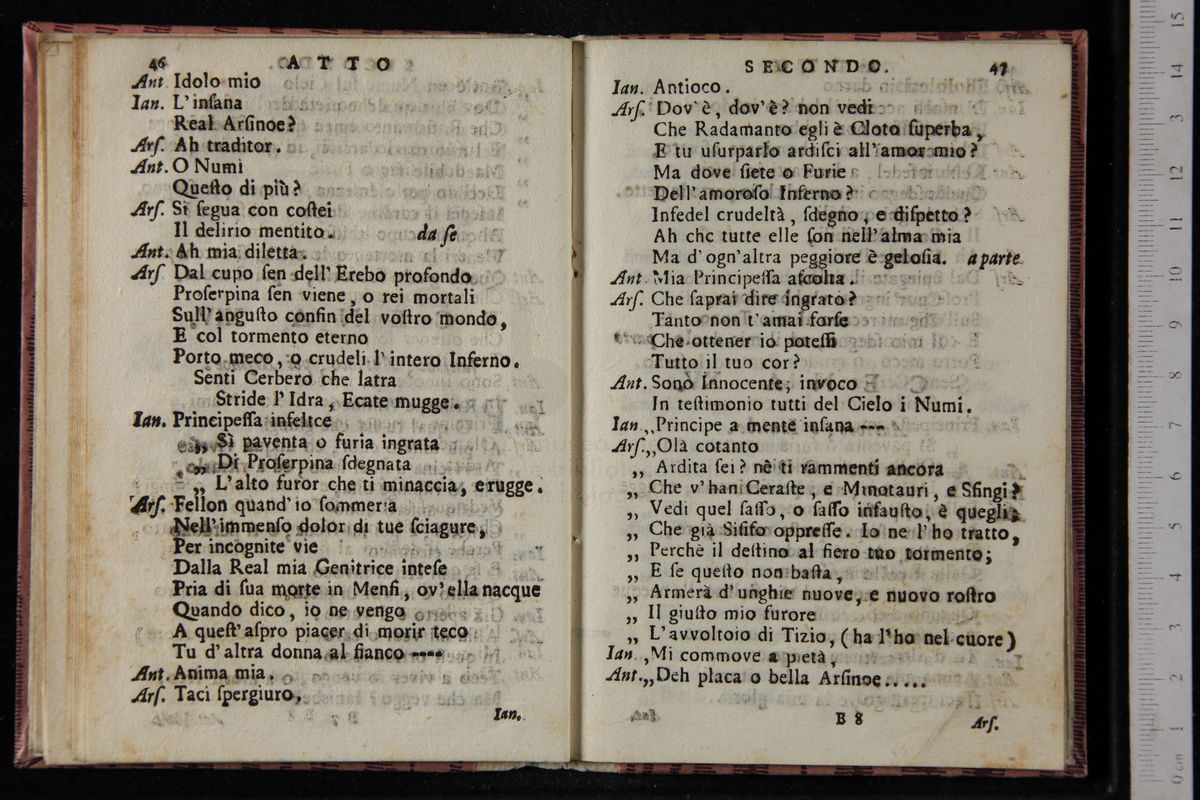 46 ATTO
Ant. Idolo mio
Ian. L'inſana
Real Arſinoe?
Arſ. Ah traditor.
Ant. O Numi
Queſto di più?
Arſ. Si ſegua con coſtei
Il delirio mentito. da ſe
Ant. Ah mia diletta.
Arſ Dal cupo ſen dell' Erebo profondo
Proſerpina ſen viene, o rei mortali
Sull'anguſto confin del voſtro mondo,
E col tormento eterno
Porto meco, o crudeli l'intero Inferno.
Senti Cerbero che latra
Stride l'Idra, Ecate mugge.
Ian. Principeſſa infelice
„ Sì paventa o furia ingrata
„ Di Proſerpina ſdegnata
„ L'alto furor che ti minaccia, e rugge.
Arſ. Fellon quand' io ſommerſa
Nell' immenſo dolor di tue ſciagure,
Per incognite vie
Dalla Real mia Genitrice inteſe
Pria di ſua morte in Menfi, ov' ella nacque
Quando dico, io ne vengo
A queſt' aſpro piacer di morir teco
Tu d'altra donna al fianco ----
Ant. Anima mia.
Arſ. Taci ſpergiuro,
Ian.
SECONDO. 47
Ian. Antioco.
Arſ. Dov'è, dov'è? non vedi
Che Radamanto egli è Cloto ſuperba,
E tu uſurparlo ardiſci all'amor mio?
Ma dove ſiete o Furie
Dell'amoroſo Inferno?
Infedel crudeltà, ſdegno, e diſpetto?
Ah che tutte elle ſon nell'alma mia
Ma d'ogn'altra peggiore è geloſia. a parte
Ant. Mia Principeſſa aſcolta.
Arſ. Che ſaprai dire ingrato?
Tanto non t'amai forſe
Che ottener io poteſſi
Tutto il tuo cor?
Ant. Sono Innocente; invoco
In teſtimonio tutti del Cielo i Numi.
Ian „Principe a mente inſana ---
Arſ.„Olà cotanto
„ Ardita ſei? nè ti rammenti ancora
„ Che v'han Ceraſte, e Minotauri, e Sfingi?
„ Vedi quel ſaſſo, o ſaſſo infauſto, è quegli;
„ Che già Siſifo oppreſſe. Io ne l'ho tratto,
„ Perchè il deſtino al fiero tuo tormento;
„ E ſe queſto non baſta,
„ Armerà d'unghie nuove, e nuovo roſtro
„ Il giuſto mio furore
„ L'avvoltoio di Tizio, (ha l'ho nel cuore)
Ian ,Mi commove a pietà,
Ant.„Deh placa o bella Arſinoe.....
B 8 Arſ.
0 cm 1 2 3 4 5 6 7 8 9 10 11 12 13 14 15